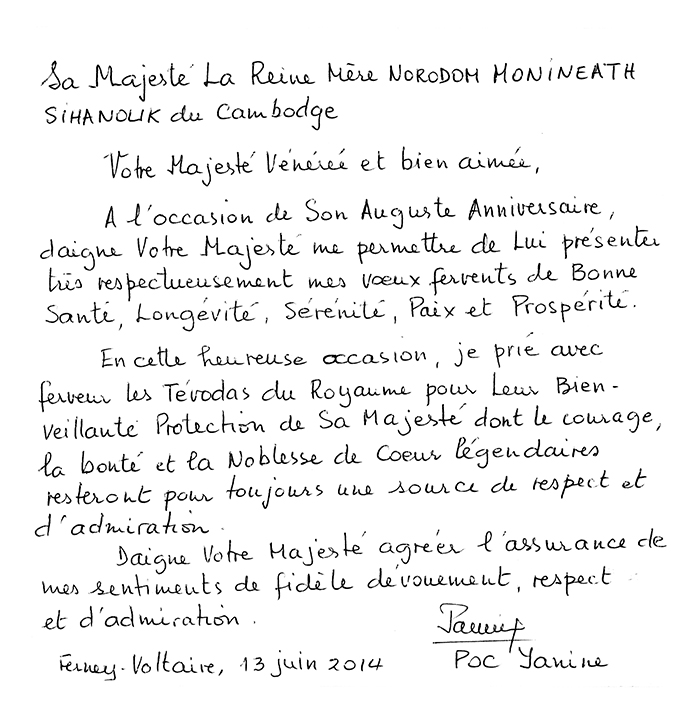 Sa Majesté La Reine Mère NORODOM MONINEATH
SIHANOUK du Cambodge
Votre Majesté Vénérée et bien aimée,
A l'occasion de Son Auguste Anniversaire,
daigne Votre Majesté me permettre de Lui présenter
très respectueusement mes vœux fervents de Bonne
Santé, Longévité, Sérénité, Paix et Prospérité.
En cette heureuse occasion, je prie avec
ferveur les Tévodas du Royaume pour Leur Bien-
veillante Protection de Sa Majesté dont le courage,
la bonté et la Noblesse de Coeur légendaires
resteront pour toujours une source de respect et
d'admiration.
Daigne Votre Majesté agréer l'assurance de
mes sentiments de fidèle dévouement, respect
et d'admiration.
Ferney-Voltaire, 13 juin 2014
POC Yanine